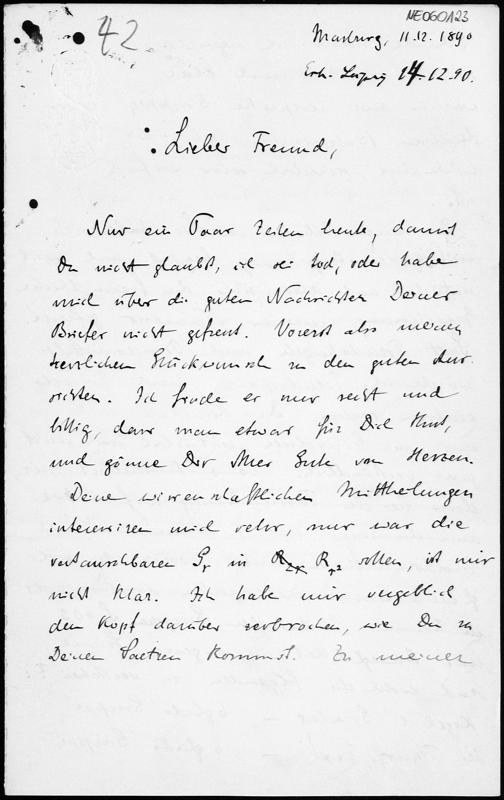 NEOGOA23
42
Marburg, 11.12.1890
Erh. Leipzig 14.12.90.
Lieber Freund,
Nur ein Paar Zeilen heute, damit
Du nicht glaubst, ich sei tod, oder habe
mich über die guten Nachrichten Deiner
Briefer nicht gefreut. Vorerst also meinen
herzlichen Glückwunsch zu den guten Aus-
sichten. Ich finde es nur recht und
billig, dass man etwas für Dich thut,
und gönne Dir Alles Gute von Herzen.
Deine wissenschaftlichen Mittheilungen
interessiren mich sehr, nur was die
vertauschbaren Gr in R2r sollen, ist mir
nicht klar. Ich habe mir vergeblich
den Kopf darüber zerbrochen, wie Du zu
Deinen Saetzen kommst. In meiner